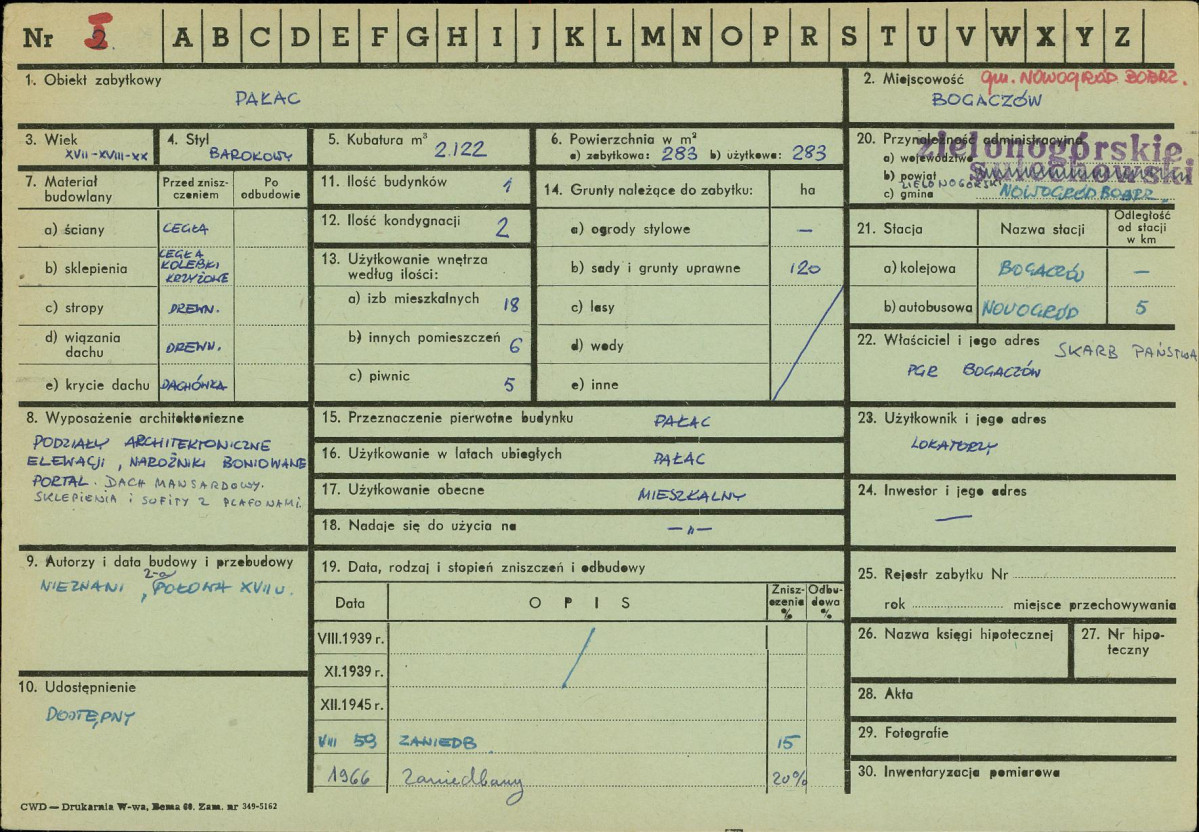 Nr 2. A B C D E F G H I J K L M N O P R S T U V W X Y Z
1. Obiekt zabytkowy
PAŁAC
2. Miejscowość gm. NOWOGRÓD BOBRZ.
BOGACZÓW
3. Wiek
XVII-XVIII-XX
4. Styl
BAROKOWY
5. Kubatura m³
2.122
6. Powierzchnia w m²
a) zabytkowa: 283 b) użytkowa: 283
20. Przynależność administracyjna
zielonogórskie
a) województwo
b) powiat
ZIELONOGÓRSKI
c) gmina NOWOGRÓD BOBRZ.
7. Materiał budowlany
Przed zniszczeniem
Po odbudowie
a) ściany CEGŁA
b) sklepienia CEGŁA KOLEBKI KRZYŻOWE
c) stropy DREWN.
d) wiązania dachu DREWN.
e) krycie dachu DACHÓWKA
11. Ilość budynków 1
12. Ilość kondygnacji 2
13. Użytkowanie wnętrza
według ilości:
a) izb mieszkalnych 18
b) innych pomieszczeń 6
c) piwnic 5
14. Grunty należące do zabytku: ha
a) ogrody stylowe —
b) sady i grunty uprawne 120
c) lasy
d) wody
e) inne
21. Stacja Nazwa stacji Odległość od stacji w km
a) kolejowa BOGACZÓW —
b) autobusowa NOWOGRÓD 5
22. Właściciel i jego adres SKARB PAŃSTWA
PGR BOGACZÓW
8. Wyposażenie architektoniczne
PODZIAŁY ARCHITEKTONICZNE
ELEWACJI, NAROŻNIKI BONIOWANE
PORTAL. DACH MANSARDOWY.
SKLEPIENIA i SUFITY Z PLAFONAMI.
15. Przeznaczenie pierwotne budynku PAŁAC
16. Użytkowanie w latach ubiegłych PAŁAC
17. Użytkowanie obecne MIESZKALNY
18. Nadaje się do użycia na —„—
23. Użytkownik i jego adres
LOKATORZY
24. Inwestor i jego adres
—
9. Autorzy i data budowy i przebudowy
NIEZNANI, 2-a POŁOWA XVII w.
10. Udostępnienie
DOSTĘPNY
19. Data, rodzaj i stopień zniszczeń i odbudowy
Data OPIS Zniszczenia % Odbudowa %
VIII.1939 r.
XI.1939 r.
XII.1945 r.
VIII 59 ZANIEDB 15
1966 Zaniedbany 20%
25. Rejestr zabytku Nr
rok miejsce przechowywania
26. Nazwa księgi hipotecznej
27. Nr hipoteczny
28. Akta
29. Fotografie
30. Inwentaryzacja pomiarowa
CWD — Drukarnia W-wa, Bema 60. Zam. nr 349-5162